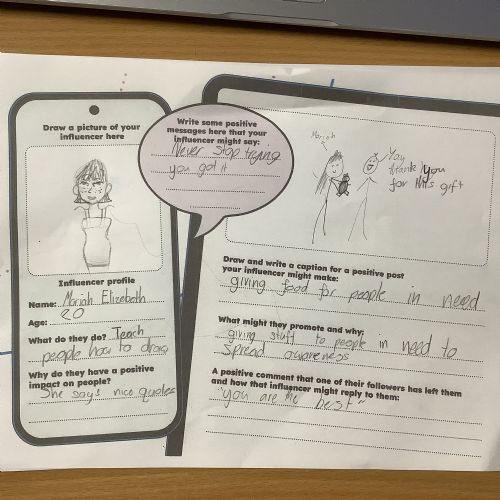 Draw a picture of your
influencer here
Influencer profile
Name: Mariah Elizebeth
Age: 20
What do they do? Teach
people how to draw
Why do they have a positive
impact on people?
She says nice quotes
Write some positive
messages here that your
influencer might say:
Never stop trying
you got it
Mariah
Yay
thank you
for this gift
Draw and write a caption for a positive post
your influencer might make:
giving food for people in need
What might they promote and why:
giving stuff to people in need to
spread awareness
A positive comment that one of their followers has left them
and how that influencer might reply to them:
"you are the best"